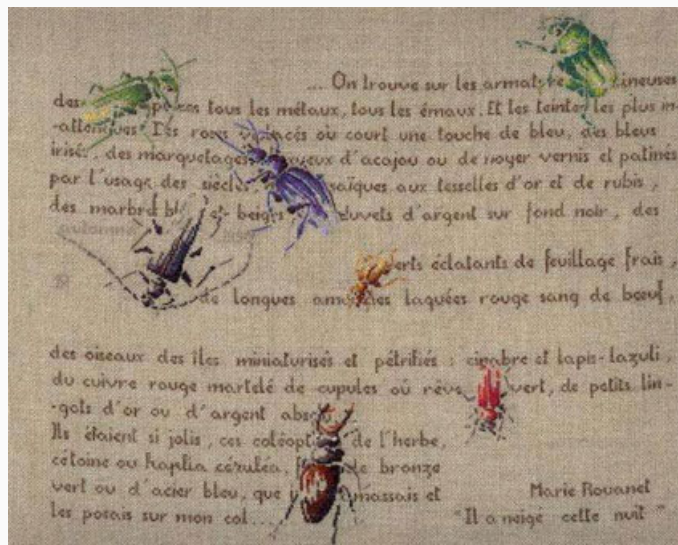 ... On trouve sur les
des tous les métaux, tous les émaux. Et les teintes les plus in-
-attendues. Des roses où court une touche de bleu, des bleus
irisés, des marquetages d'acajou ou de noyer vernis et patinés
par l'usage des siècles, aux tesselles d'or et de rubis,
des et beiges duvets d'argent sur fond noir, des
automne
verts éclatants de feuillage frais,
de longues laquées rouge sang de bœuf,
des oiseaux des îles miniaturisés et pétrifiés : cinabre et lapis-lazuli,
du cuivre rouge martelé de cupules où rêve vert, de petits lin-
-gots d'or ou d'argent
Ils étaient si jolis, ces de l'herbe,
cétoine ou hoplia de bronze
vert ou d'acier bleu, que amassais et
les posais sur mon col...
Marie Rouanet
"Il a neigé cette nuit"